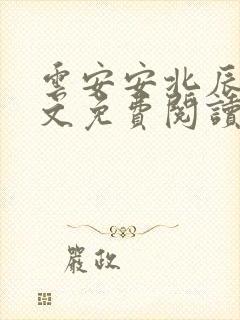 雲安安北辰
文免費閱讀
嚴政